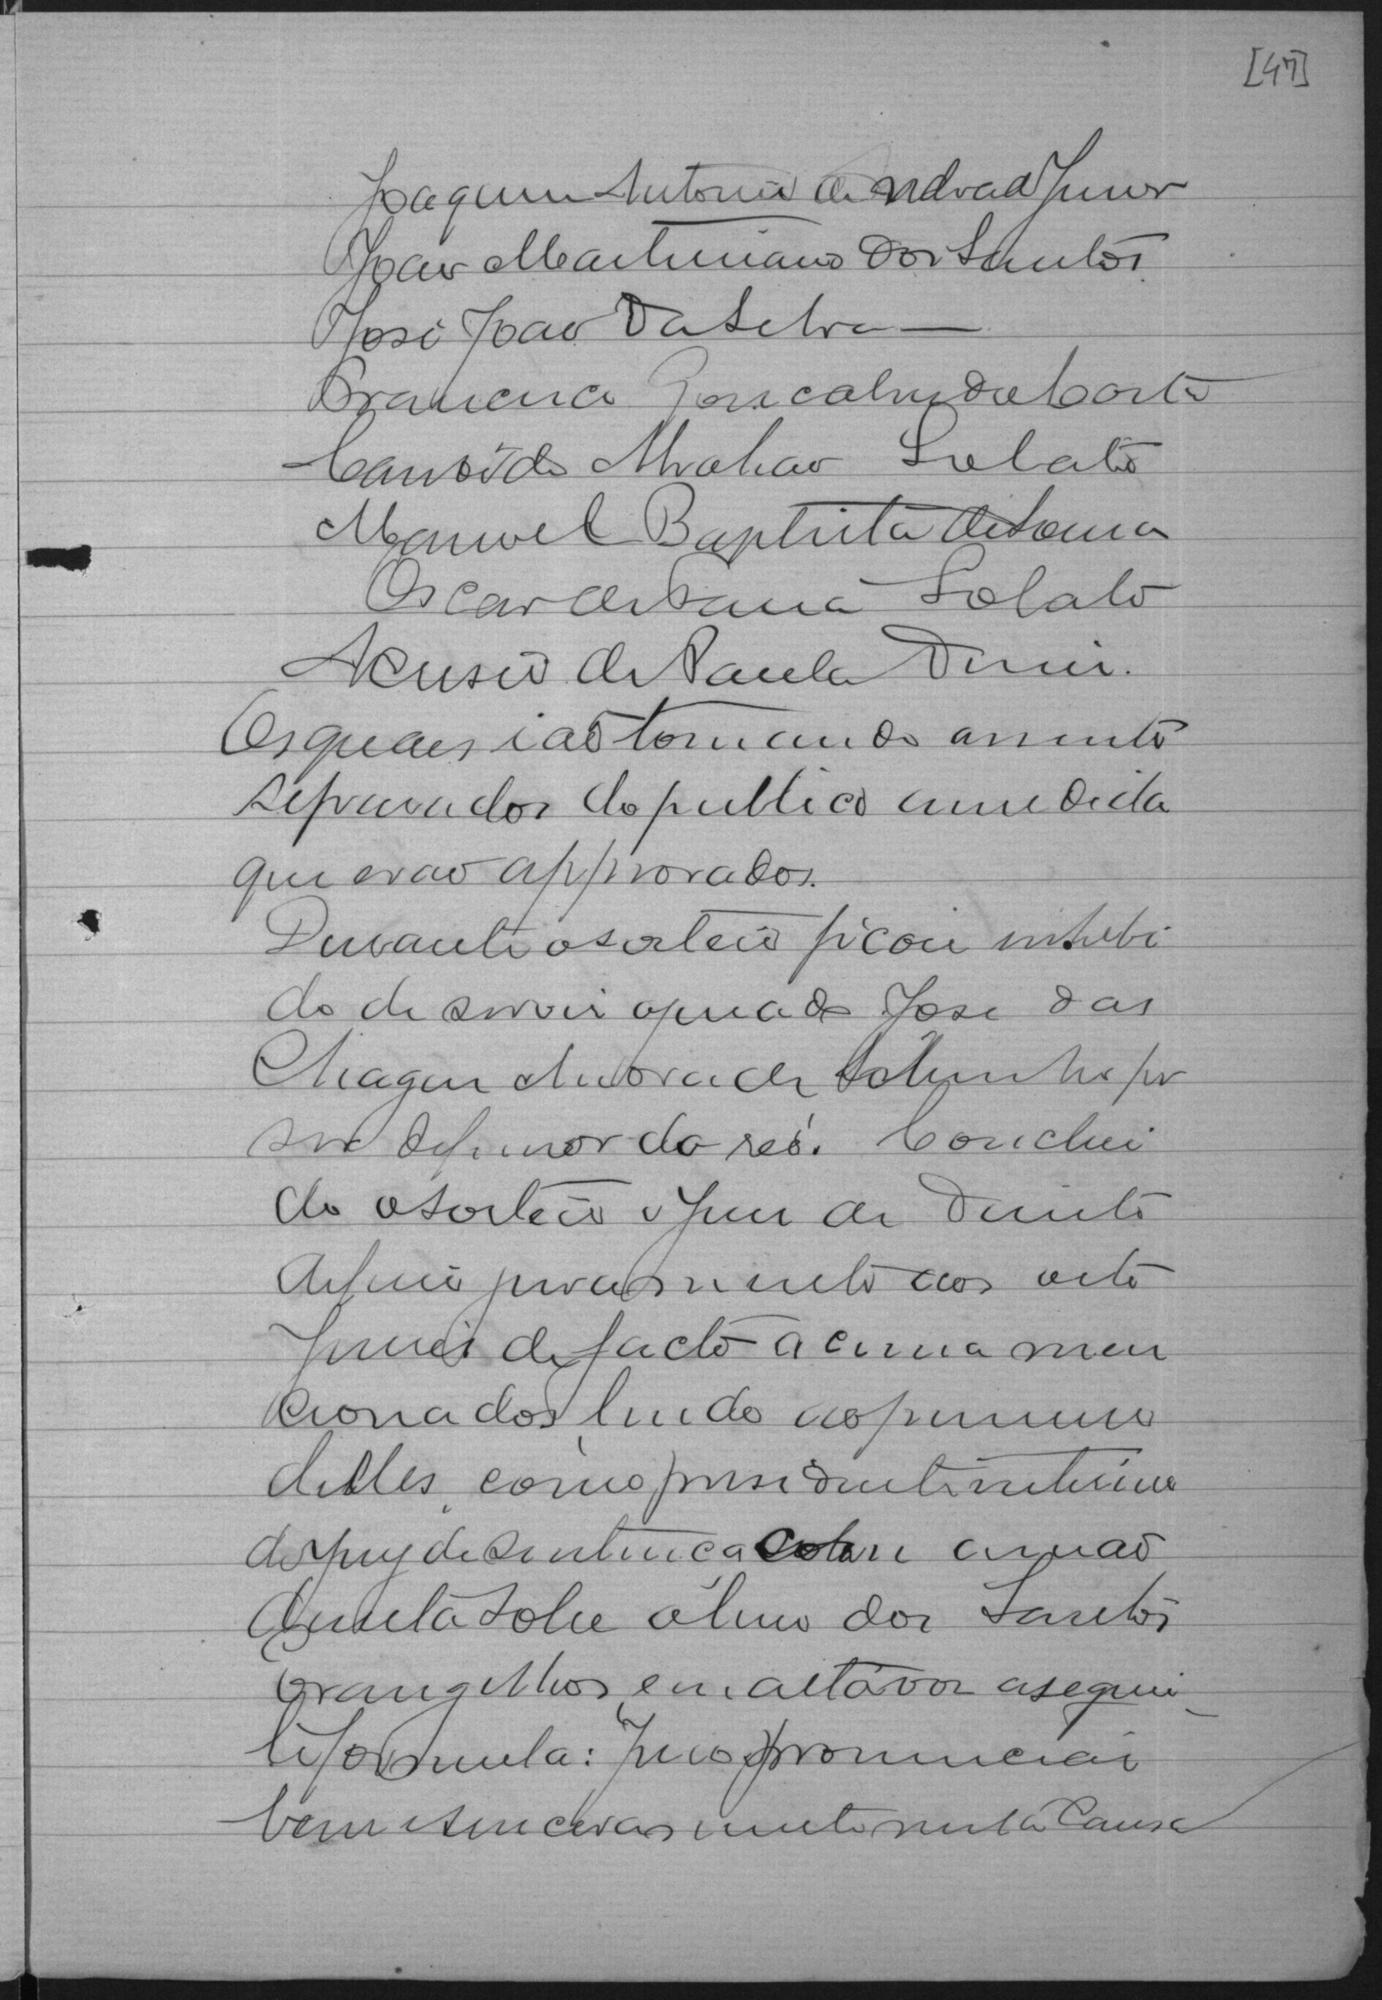 [47]
Joaquim Antonio de Andrad Junior
João Martiniano dos Santos
José João da Silva
Francisco Gonçalves da Costa
Candido Abrahão Lobato
Manoel Baptista de Souza
Oscar de Lobato
Acusio de Paula Diniz.
Os quaes ião tomando assento
separados do publico a medida
que erão approvados.
Durante o sorteio ficou inhibi
do de servir o jurado José das
Chagas Andrade Sobrinho por
ser defensor do réo. Conclui
do o sorteio o Juiz de Direito
deferio juramento aos oito
Juizes de facto acima men
cionados, lendo ao primeiro
delles, como presidente interino
do jury de sentença com a mão
direita sobre o livro dos Santos
Evangelhos em alta voz a segui
te formula: Juro pronunciar
bem e sinceramente nesta Causa